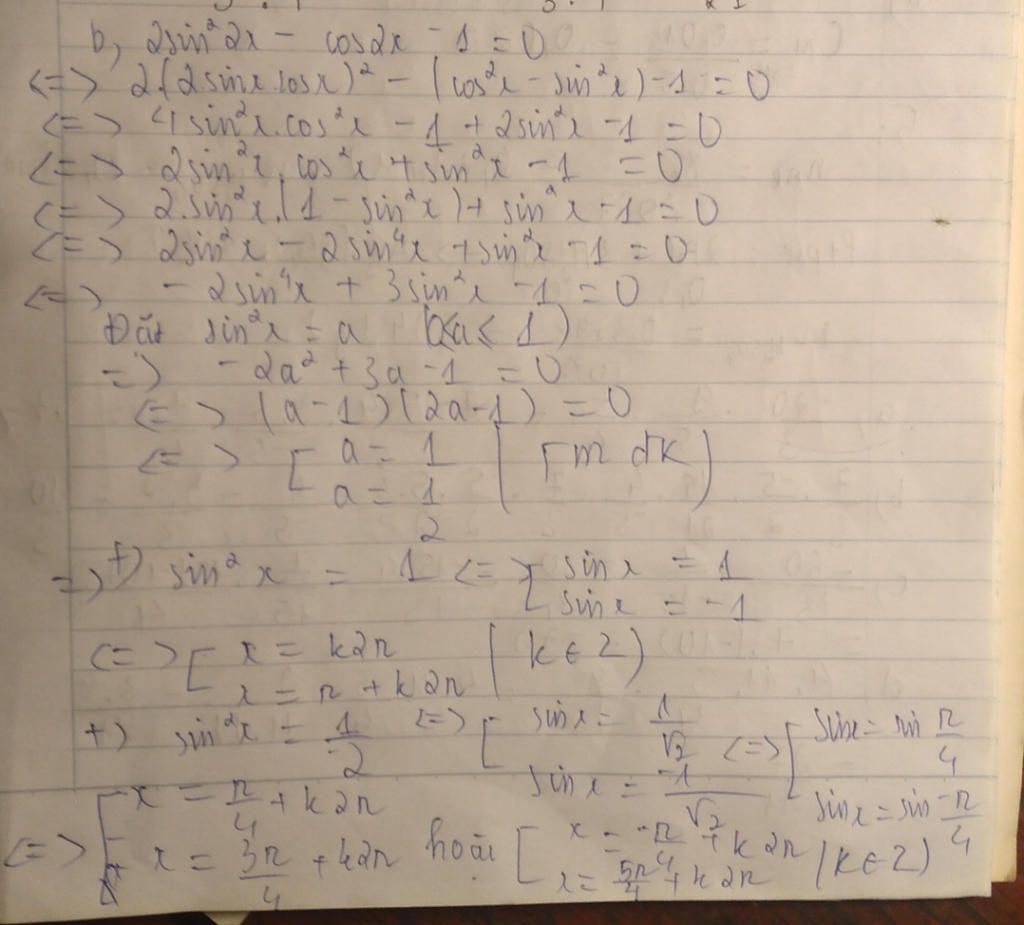 b, 2sin²2x - cos2x - 1 = 0
<=> 2.(2sinx.cosx)² - (cos²x - sin²x) - 1 = 0
<=> 4sin²x.cos²x - 1 + 2sin²x - 1 = 0
<=> 2sin²x.cos²x + sin²x - 1 = 0
<=> 2.sin²x.(1 - sin²x) + sin²x - 1 = 0
<=> 2sin²x - 2sin⁴x + sin²x - 1 = 0
<=> - 2sin⁴x + 3sin²x - 1 = 0
Đặt sin²x = a (0≤a≤1)
=> - 2a² + 3a - 1 = 0
<=> (a - 1)(2a - 1) = 0
<=> [ a = 1 ; a = 1/2 (Tm đk)
=> +) sin²x = 1 <=> [ sinx = 1 ; sinx = -1
<=> [ x = k2π ; x = π + k2π (k ∈ Z)
+) sin²x = 1/2 <=> [ sinx = 1/√2 ; sinx = -1/√2 <=> [ sinx = sin π/4 ; sinx = sin -π/4
<=> [ x = π/4 + k2π ; x = 3π/4 + k2π hoặc [ x = -π/4 + k2π ; x = 5π/4 + k2π (k ∈ Z)